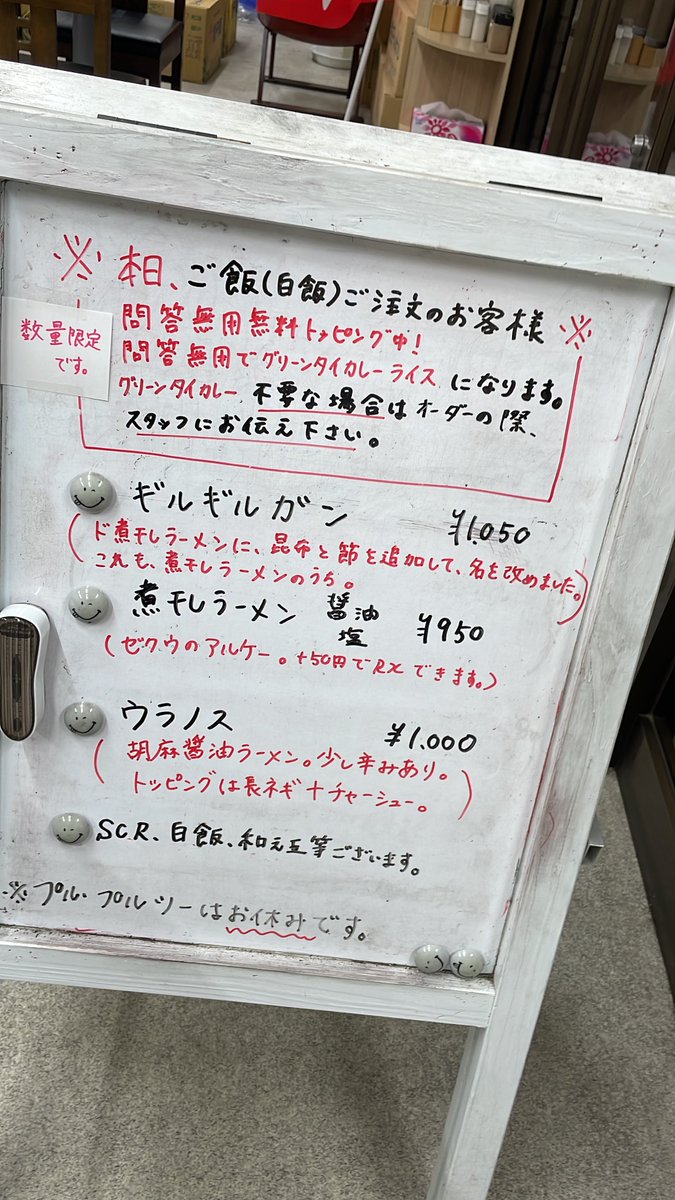 ※ 本日、ご飯(白飯)ご注文のお客様 ※
数量限定
です。
問答無用無料トッピング中!
問答無用でグリーンタイカレーライスになります。
グリーンタイカレー 不要な場合はオーダーの際、
スタッフにお伝え下さい。
ギルギルガン ¥1.050
(ド煮干しラーメンに、昆布と節を追加して、名を改めました。
これも、煮干しラーメンのうち。)
煮干しラーメン 醤油
塩 ¥950
(ゼクウのアルケー。+50円でRXできます。)
ウラノス ¥1.000
(胡麻醤油ラーメン。少し辛みあり。
トッピングは長ネギ+チャーシュー。)
SCR、白飯、和え玉等ございます。
※プル・プルツーはお休みです。